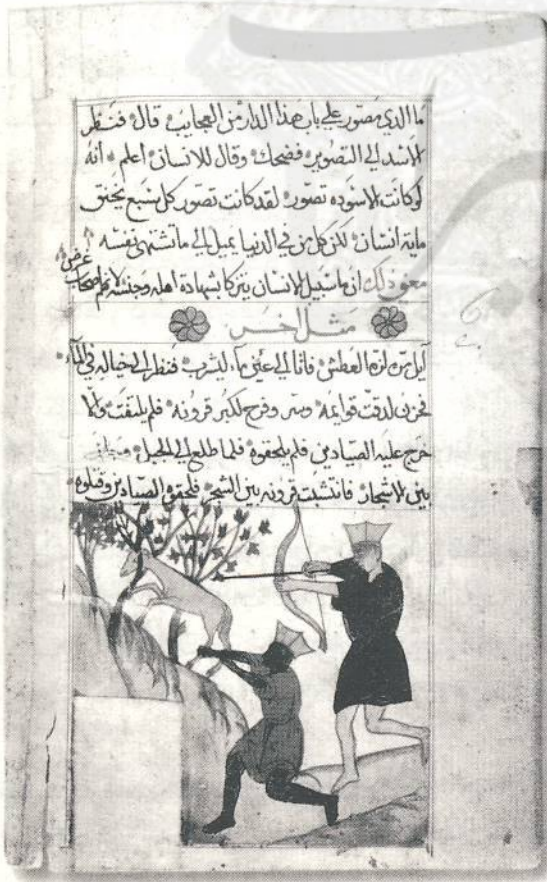 ما الذي مصور علي باب هذا الدار من العجايب قال فنظر
الاسد الي التصوير فضحك وقال للانسان اعلم انه
لو كانت الاسوده تصور لقد كانت تصور كل سبع يخنق
ماية انسان لكن كل من في الدنيا يميل الي ما تشتهي نفسه
مع ذلك ان ما سبيل الانسان يتزكا بشهادة اهله وجنسه لانهم اصحاب
غرض
مثل اخر
ايل مره لزه العطش فاتا الي عين ماء ليشرب فنظر الي خياله في الماء
فحزن لدقت قوايمه وسر وفرح لكبر قرونه فلم يلتفت والا
خرج عليه الصيادين فلم يلحقوه فلما طلع الي الجبل
بين الاشجار فانتشبت قرونه بين الشجر فلحقوه الصيادين وقتلوه